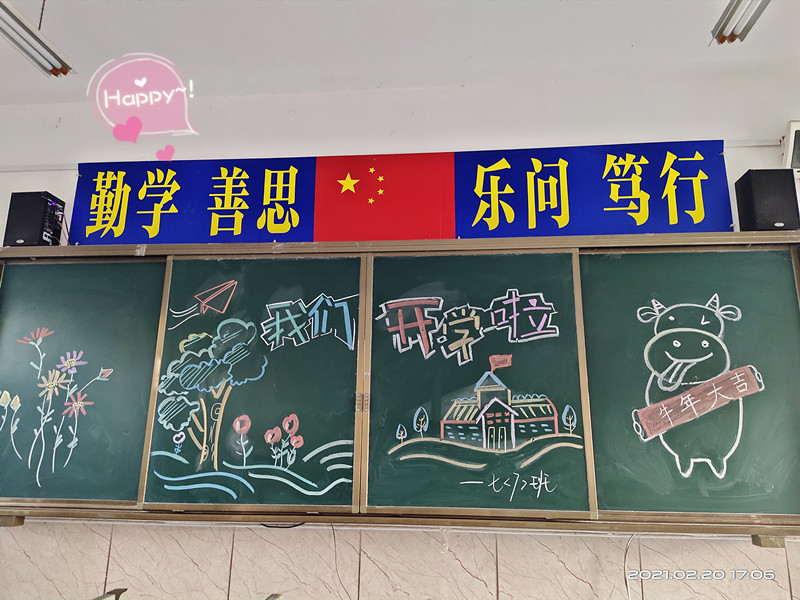 Happy~!
勤学 善思 乐问 笃行
我们 开学啦
牛年大吉
一七<7>班
2021.02.20 17:06